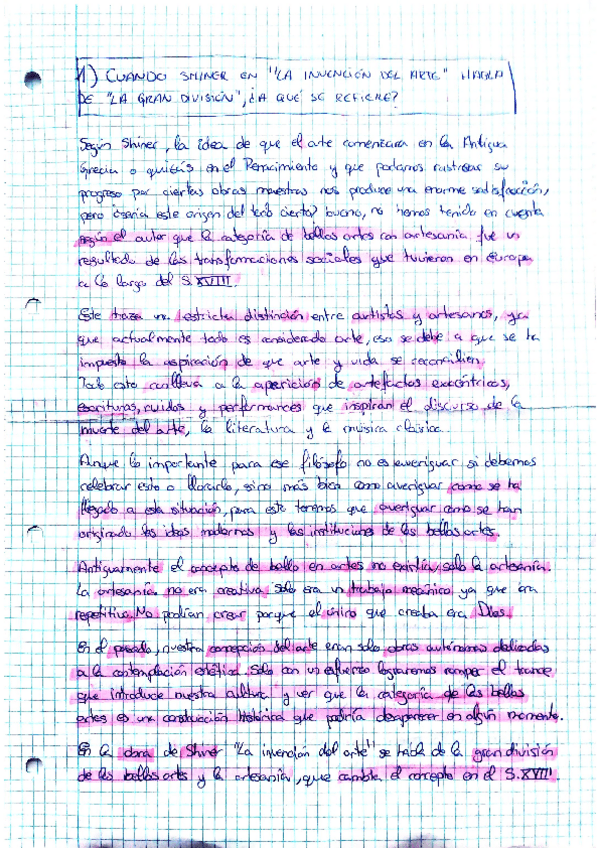 1) CUANDO SHINER EN "LA INVENCIÓN DEL ARTE" HABLA
DE "LA GRAN DIVISIÓN", ¿A QUÉ SE REFIERE?
Según Shiner, la idea de que el arte comenzara en la Antigua
Grecia o quizás en el Renacimiento y que podamos rastrear su
progreso por ciertas obras maestras nos produce una enorme satisfacción,
pero ¿sería este origen del todo cierto? bueno, no hemos tenido en cuenta
según el autor que la categoría de bellas artes con artesanía fue un
resultado de las transformaciones sociales que tuvieron en Europa
a lo largo del S. XVIII.
Este traza una estricta distinción entre artistas y artesanos, ya
que actualmente todo es considerado arte, eso se debe a que se ha
impuesto la aspiración de que arte y vida se reconcilien.
Todo esto conlleva a la aparición de artefactos excéntricos,
escrituras, ruidos y performances que inspiran el discurso de la
muerte del arte, la literatura y la música clásica.
Aunque lo importante para ese filósofo no es averiguar si debemos
celebrar esto o llorarlo, sino más bien como averiguar como se ha
llegado a esta situación, para este tenemos que averiguar como se han
originado las ideas modernas y las instituciones de las bellas artes.
Antiguamente el concepto de bello en artes no existía, solo la artesanía.
La artesanía no era creativa solo era un trabajo mecánico ya que era
repetitivo. No podían crear porque el único que creaba era Dios.
En el pasado, nuestra concepción del arte eran solo obras autónomas dedicadas
a la contemplación estética. Solo con un esfuerzo lograremos romper el trance
que introduce nuestra cultura y ver que la categoría de las bellas
artes es una construcción histórica que podría desaparecer en algún momento.
En la obra de Shiner "La invención del arte" se habla de la gran división
de las bellas artes y la artesanía, que cambia el concepto en el S. XVIII.